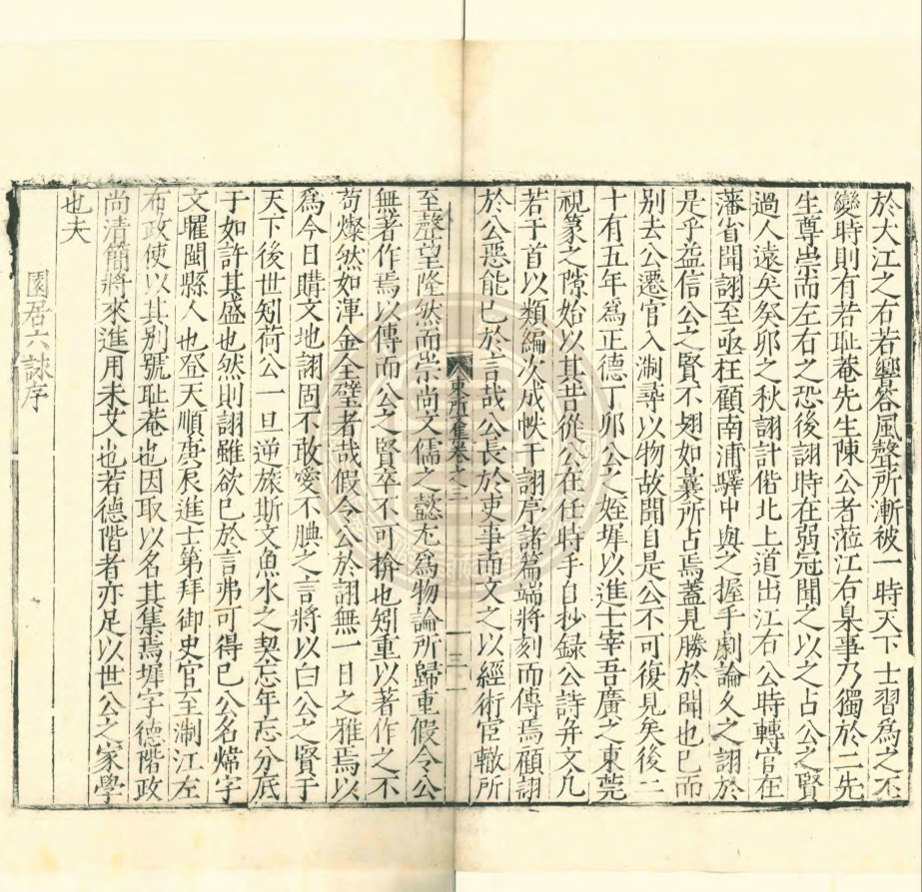 於大江之右若響答風聲所漸被一時天下士習為之丕
變時則有若耻菴先生陳公者蒞江右臬事乃獨於二先
生尊崇而左右之恐後詡時在弱冠聞之以之占公之賢
過人遠矣癸卯之秋詡計偕北上道出江右公時轉官在
藩省聞詡至亟枉顧南浦驛中與之握手劇論久之詡於
是乎益信公之賢不翅如曩所占焉蓋見勝於聞也已而
别去公遷官入淛尋以物故聞自是公不可復見矣後二
十有五年為正德丁夘公之姪墀以進士宰吾廣之東莞
視篆之隙始以其昔從公在任時手自抄録公詩并文凡
若干首以類編次成帙干詡序諸篇端將刻而傳焉顧詡
於公惡能已於言哉公長於吏事而文之以經術宦轍所
東所文集卷之三
三
至聲望隆然而崇尚文儒之懿尤為物論所歸重假令公
無著作焉以傳而公之賢卒不可揜也矧重以著作之不
苟燦然如渾金全璧者哉假令公於詡無一日之雅焉以
為今日購文地詡固不敢愛不腆之言將以白公之賢于
天下後世矧荷公一旦逆旅斯文魚水之契忘年忘分底
于如許其盛也然則詡雖欲已於言弗可得已公名煒字
文曜閩縣人也登天順庚辰進士第拜御史官至淛江左
布政使以其别號耻菴也因取以名其集焉墀字德階政
尚清簡將來進用未艾也若德階者亦足以世公之家學
也夫
園居六詠序